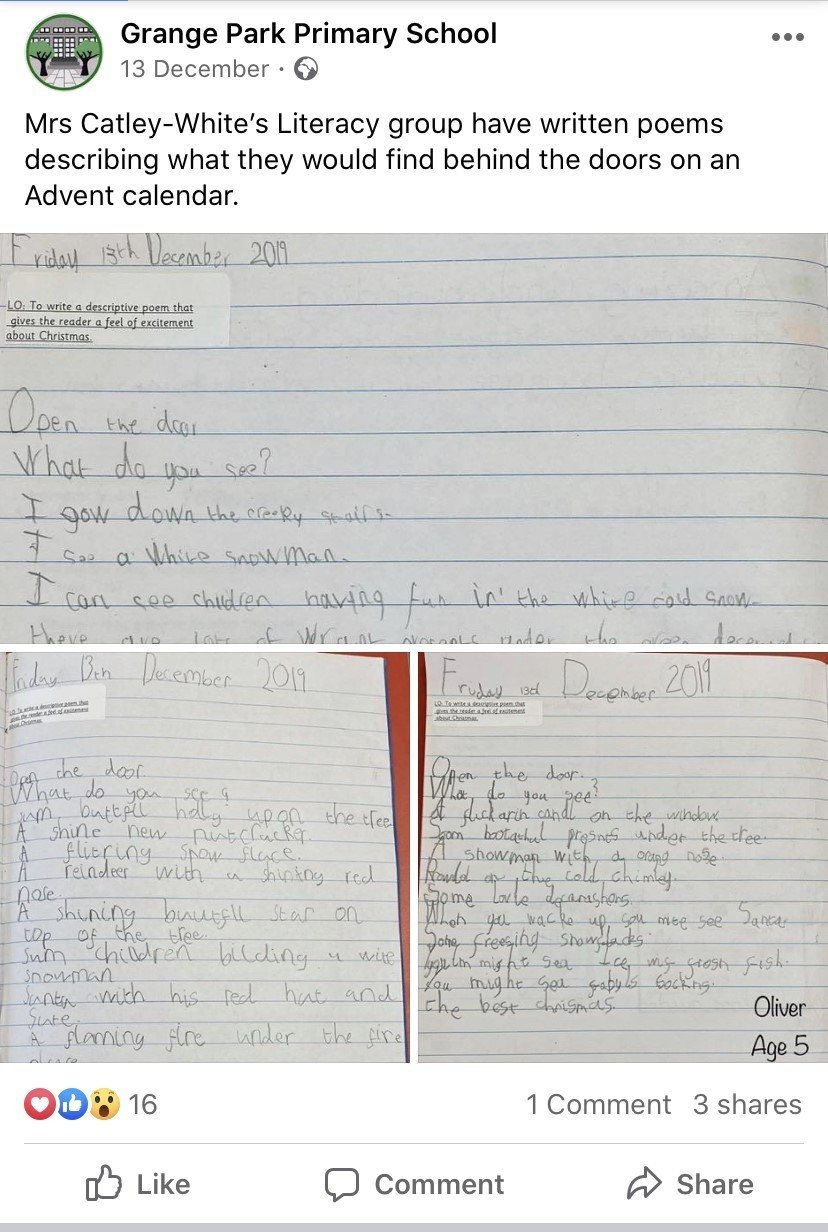 Grange Park Primary School
13 December ·
Mrs Catley-White's Literacy group have written poems
describing what they would find behind the doors on an
Advent calendar.
Friday 13th December 2019
LO: To write a descriptive poem that
gives the reader a feel of excitement
about Christmas.
Open the door
What do you see?
I gow down the creeky stairs.
I see a white snowman.
I can see children having fun in the white cold snow.
There are lots of under the green
Friday 13th December 2019
LO: To write a descriptive poem that
gives the reader a feel of excitement
about Christmas.
Open the door.
What do you see?
sum buttfll holy upon the tree
A shine new nutcracker.
A flitring snow flace.
A reindeer with a shining red
nose.
A shining buutfll star on
top of the tree.
Sum children bilding a wite
snowman
Santa with his red hat and
Sute.
A flaming fire under the fire
Friday 13d December 2019
LO: To write a descriptive poem that
gives the reader a feel of excitement
about Christmas.
Open the door.
What do you see?
A on the window
Som presnts under the tree.
A snowman with a orang nose.
the cold chimley.
Some
When you wacke up you see Santa
freesing
might see fish.
You might see
the best chrismas.
Oliver
Age 5
16
1 Comment 3 shares
Like Comment Share